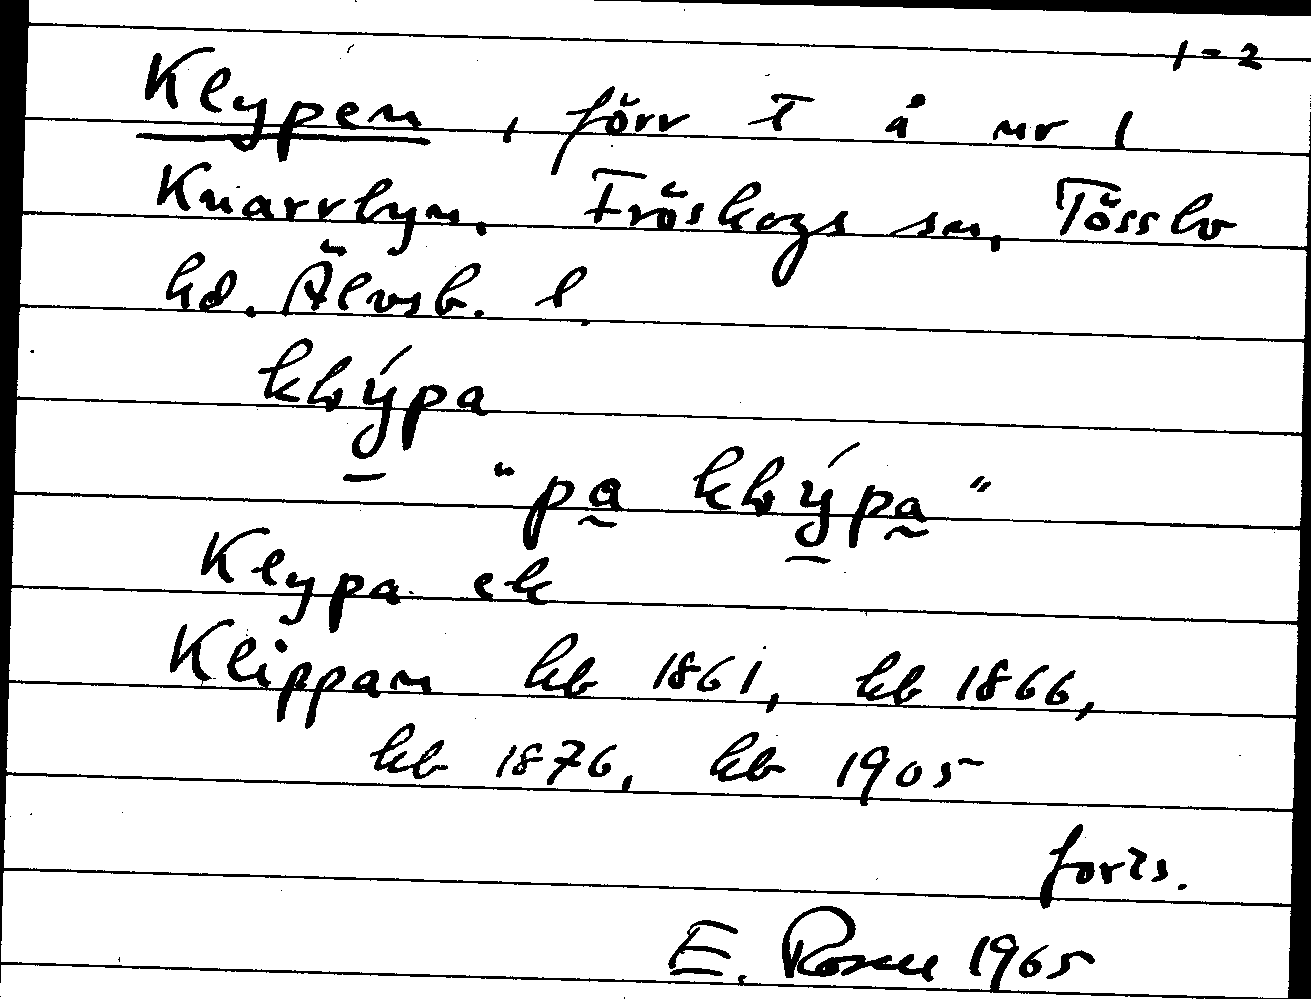 1-2
Klypen, förr T å nr 1
Knarrbyn. Fröskogs sn, Tössbo
hd. Älvsb. l.
klýpa
"pa klýpa"
Klypa ek
Klippan kb 1861, kb 1866,
kb 1876, kb 1905
forts.
E. Rosell 1965